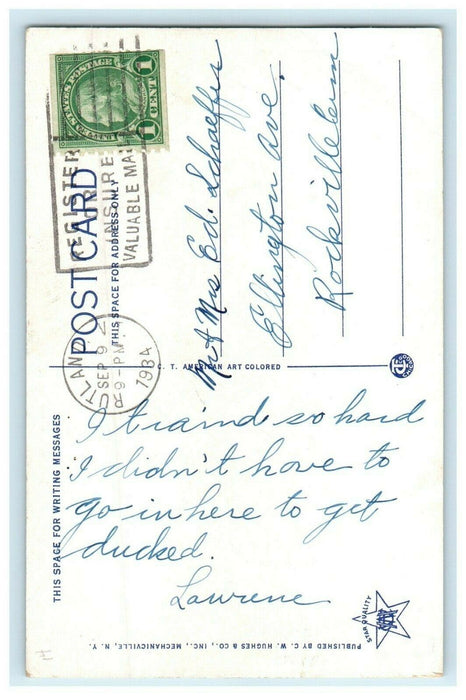 UNITED STATES POSTAGE
1 CENT 1
REGISTER
OR
INSURE
VALUABLE MAIL
POST CARD
THIS SPACE FOR ADDRESS ONLY
RUTLAND
SEP 9
9-PM
1934
Mr & Mrs Ed. Schaeffer
Ellington Ave.
Rockville
C. T. AMERICAN ART COLORED
THIS SPACE FOR WRITING MESSAGES
I traind so hard
I didn't have to
go in here to get
ducked.
Lawrene
STAR QUALITY
PUBLISHED BY C. W. HUGHES & CO., INC., MECHANICVILLE, N. Y.